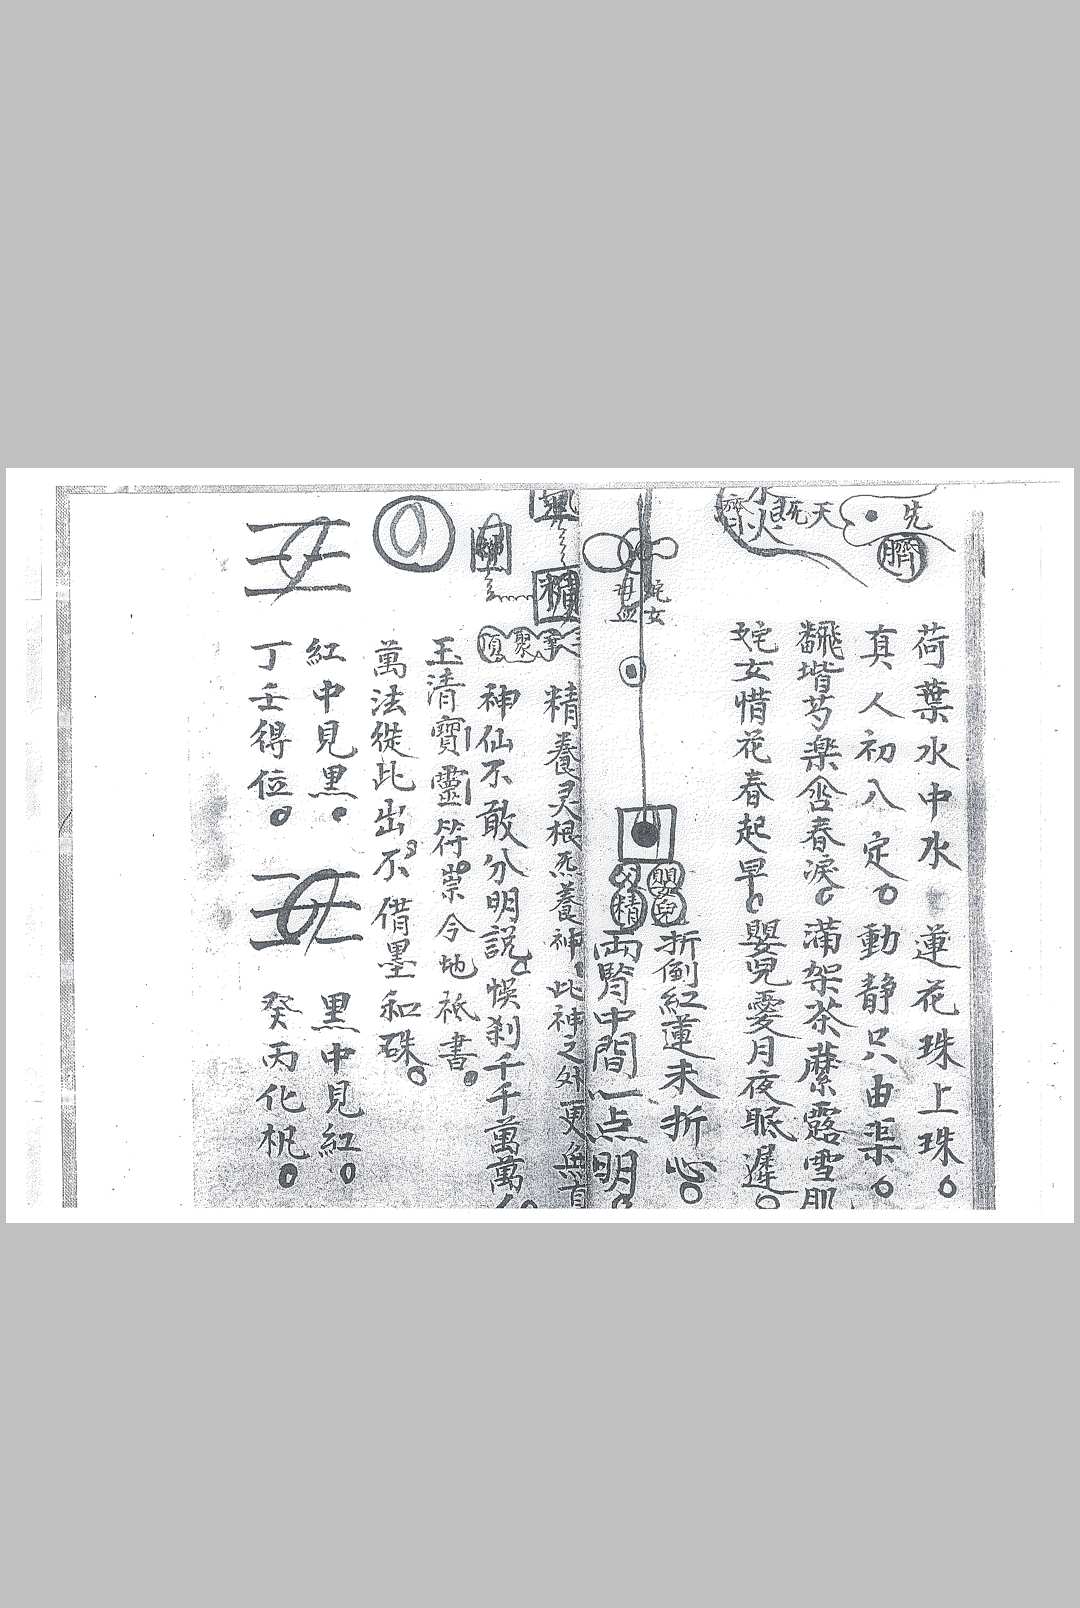 先
天
臍
荷葉水中水 蓮花珠上珠。
真人初入定。動静只由渠。
飜堦芍楽含春淚。滿架茶蘼露雪肌
姹女惜花春起早。嬰児愛月夜眠遲。
姹女
母血
嬰兒
父精
折倒紅蓮未折心。
両腎中間一点明。
精
聚
頂
精養灵根炁養神。此神之外更無
神仙不敢分明說。悞刹千千萬萬人
玉清寶靈符。崇令地祇書。
萬法從此出。不借墨和硃。
紅中見黒。 黒中見紅。
丁壬得位。 癸丙化机。